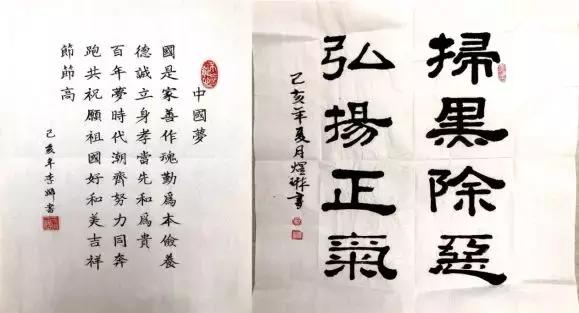 中國夢
國是家善作魂勤爲本儉養
德誠立身孝當先和爲貴
百年夢時代潮齊努力同奔
跑共祝願祖國好和美吉祥
節節高
己亥年李書
掃黑除惡
弘揚正氣
己亥年夏月煜琳書